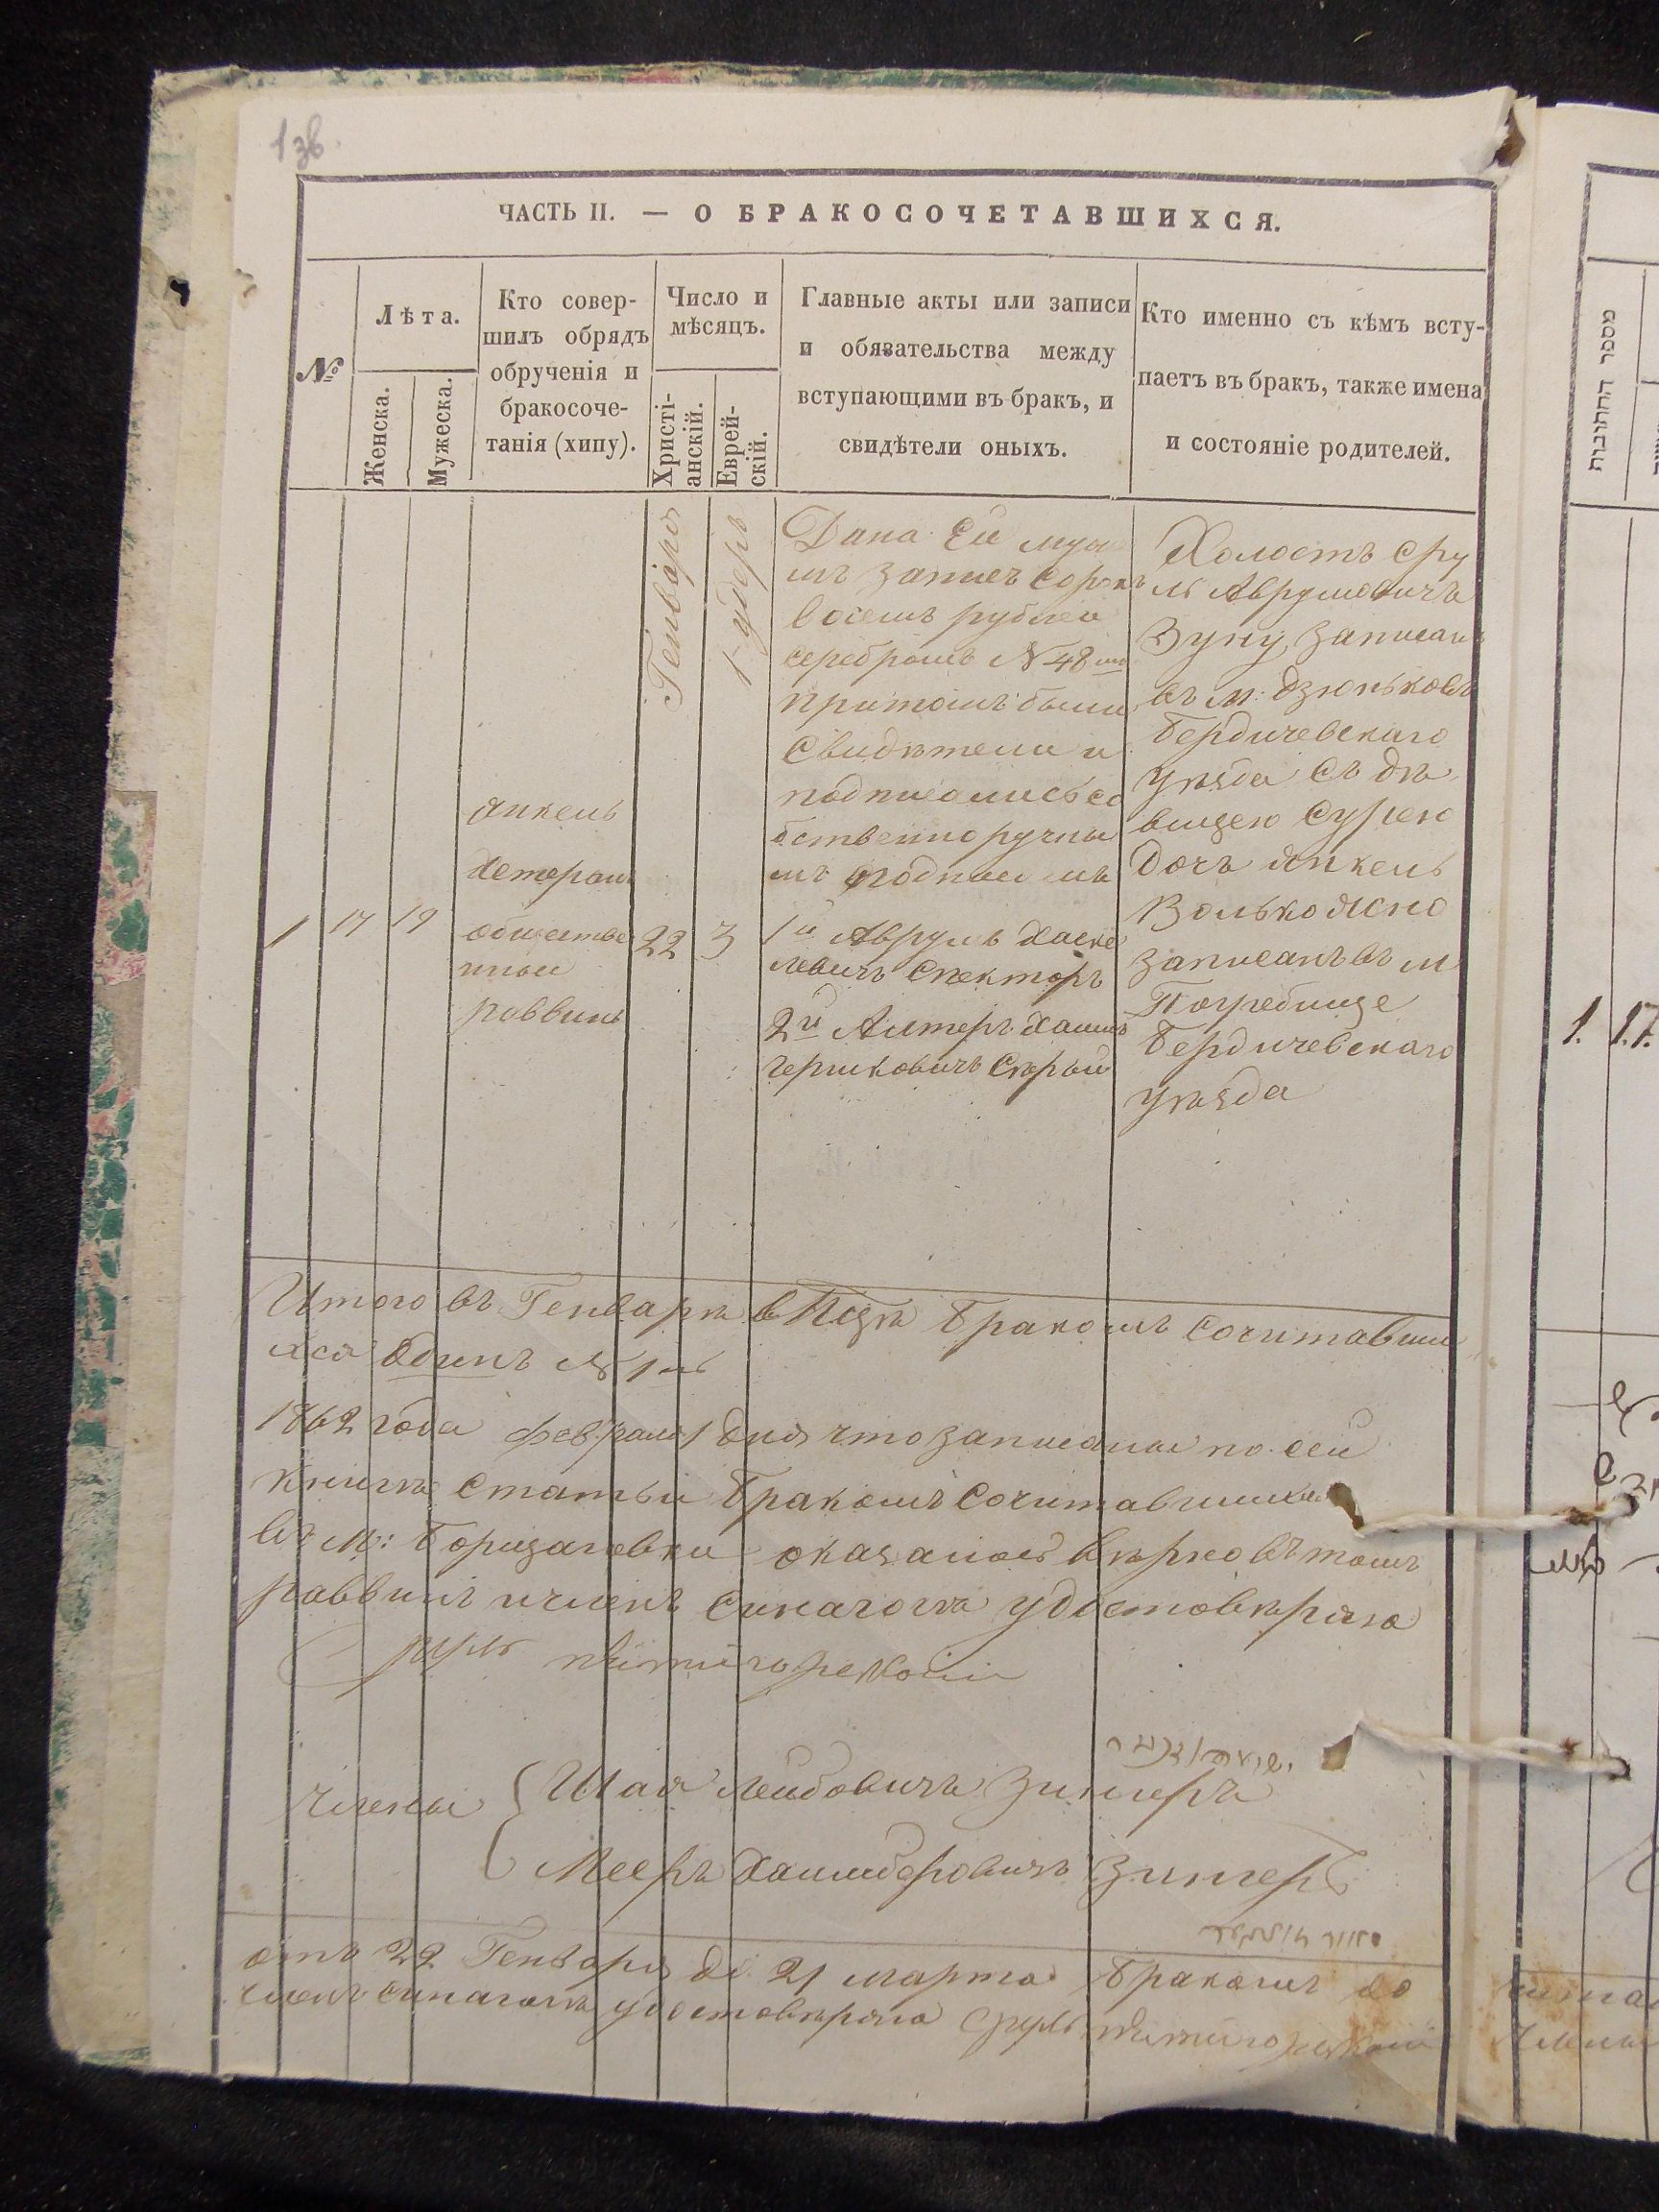 1зв.
ЧАСТЬ II. — О БРАКОСОЧЕТАВШИХСЯ.
№
Лѣта.
Женска.
Мужеска.
Кто совер-
шилъ обрядъ
обрученія и
бракосоче-
танія (хипу).
Число и
мѣсяцъ.
Христі-
анскій.
Еврей-
скій.
Главные акты или записи
и обязательства между
вступающими въ бракъ, и
свидѣтели оныхъ.
Кто именно съ кѣмъ всту-
паетъ въ бракъ, также имена
и состояніе родителей.
1
17
19
Янкель
раввинъ
Генваря
22
3
Дана ей муж
мъ запись сорокъ
восемь рублей
серебромъ № 48
притомъ были
свидѣтели и
подписались со
бственноручны
мъ подписомъ
1й Аврумъ Хаске
левичъ Спекторъ
2й Алтеръ Хаимъ
Гершковичъ Сѣрый
Холостъ Сру
ль Аврумовичъ
Зуну, записан
въ м: Дзюньковѣ
Бердичевскаго
уѣзда съ дѣ
вицею Сурею
дочъ Янкель
Волько
записанъ въ м
Погребище
Бердичевскаго
уѣзда
Итого въ Генварѣ бракомъ сочитавши
хся одинъ № 1
1862 года февраля 1 дня что записаны по сей
книгѣ статьи бракомъ сочитавшихся
въ м: Борщаговки оказалось вѣрно въ томъ
раввинъ и членъ синагоги удостовѣряю
Сруль
члены
Шая Лейбовичъ Зингеръ
Мееръ Хаимберовичъ Зингеръ
отъ 22 Генваря до 21 марта бракомъ со
членъ синагоги удостовѣряю Сруль
מספר החתונות
1. 17.